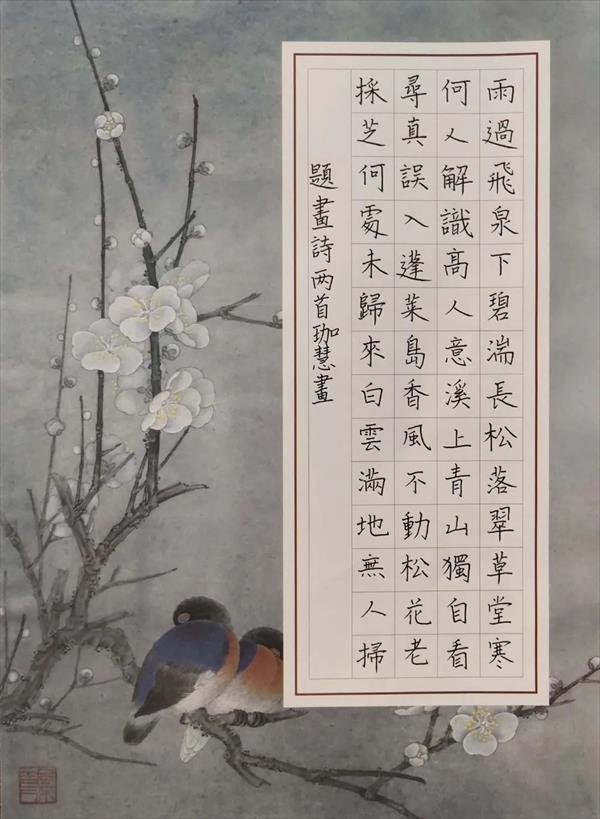 雨過飛泉下碧湍長松落翠草堂寒
何人解識高人意溪上青山獨自看
尋真誤入蓬萊島香風不動松花老
採芝何處未歸來白雲滿地無人掃
題畫詩两首珈慧畫